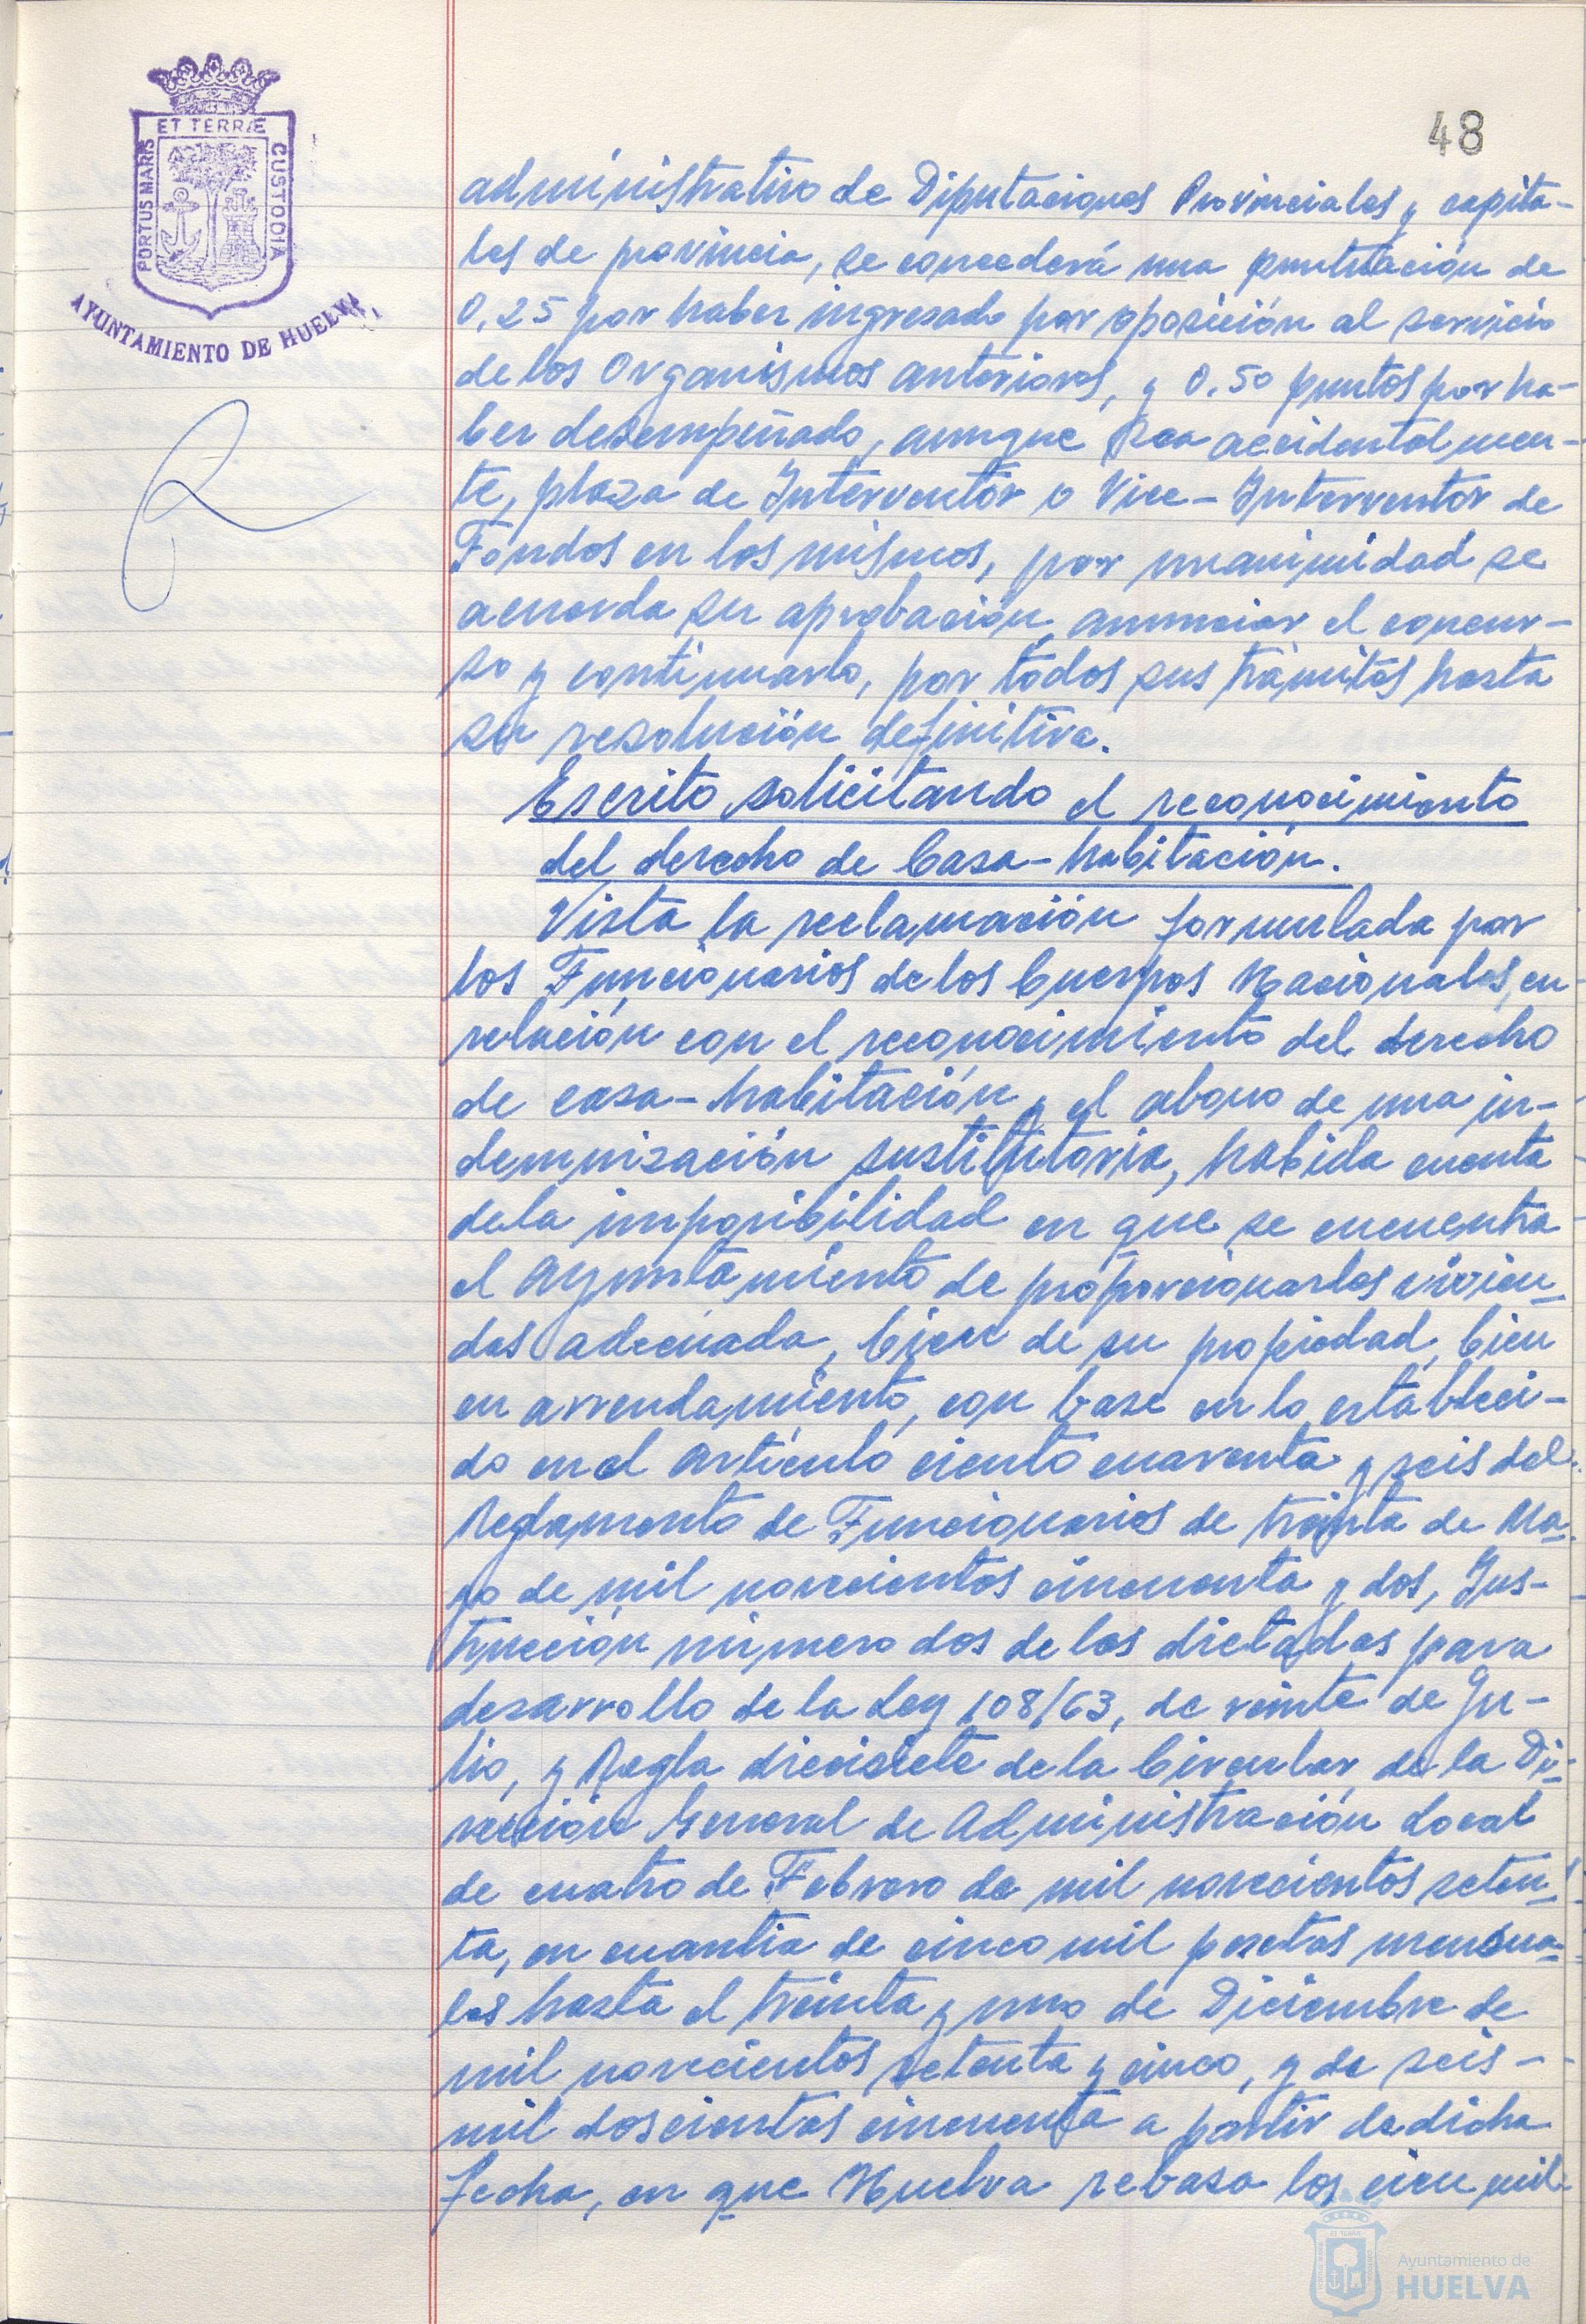 ET TERRÆ
PORTUS MARIS
CUSTODIA
AYUNTAMIENTO DE HUELVA
48
administrativo de Diputaciones Provinciales y capita-
les de provincia, se concederá una puntuación de
0,25 por haber ingresado por oposición al servicio
de los Organismos anteriores, y 0,50 puntos por ha-
ber desempeñado, aunque sea accidentalmen-
te, plaza de Interventor o Vice-Interventor de
Fondos en los mismos, por unanimidad se
acuerda su aprobación, anunciar el concur-
so y continuarlo, por todos sus trámites hasta
su resolución definitiva.
Escrito solicitando el reconocimiento
del derecho de Casa-habitación.
Vista la reclamación formulada por
los Funcionarios de los Cuerpos Nacionales, en
relación con el reconocimiento del derecho
de casa-habitación y el abono de una in-
demnización sustitutoria, habida cuenta
de la imposibilidad en que se encuentra
el Ayuntamiento de proporcionarles vivien-
das adecuada, bien de su propiedad, bien
en arrendamiento, con base en lo estableci-
do en el artículo ciento cuarenta y seis del
Reglamento de Funcionarios de treinta de Ma-
yo de mil novecientos cincuenta y dos, Ins-
trucción número dos de las dictadas para
desarrollo de la Ley 108/63, de veinte de Ju-
lio, y Regla diecisiete de la Circular de la Di-
rección General de Administración Local
de cuatro de Febrero de mil novecientos seten-
ta, en cuantía de cinco mil pesetas mensua-
les hasta el treinta y uno de Diciembre de
mil novecientos setenta y cinco, y de seis-
mil doscientas cincuenta a partir de dicha
fecha, en que Huelva rebasa los cien mil
Ayuntamiento de
HUELVA